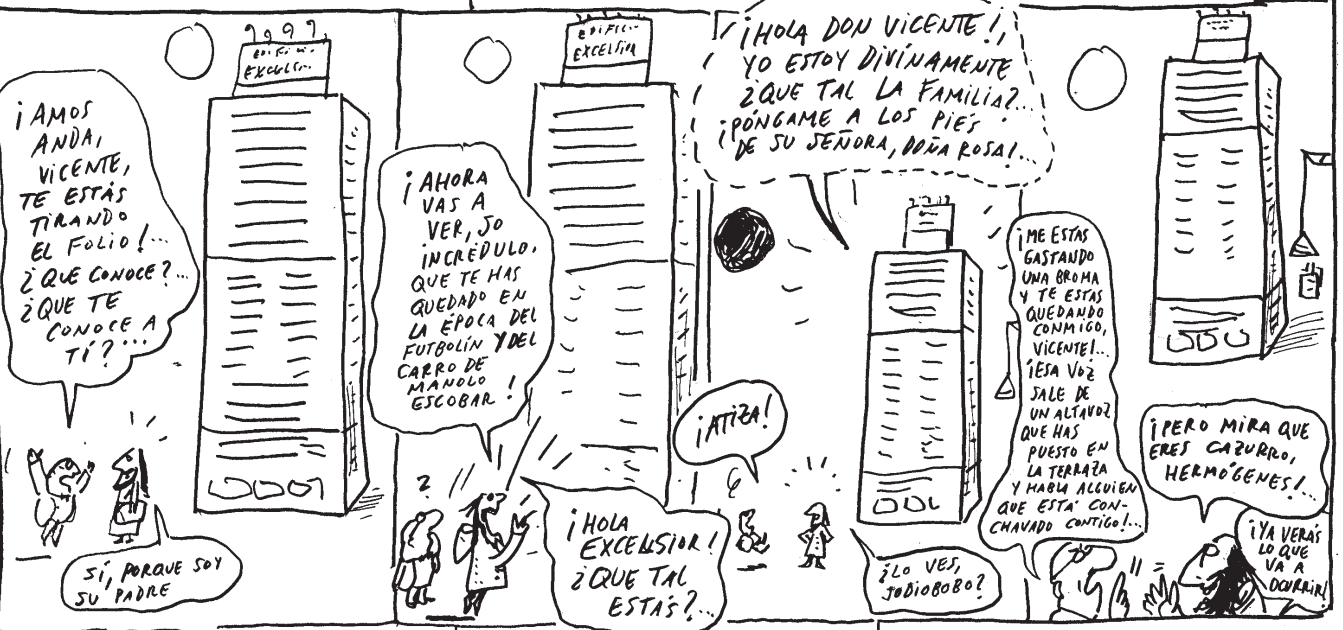 EDIFICIO
EXCELSIOR
¡AMOS
ANDA,
VICENTE,
TE ESTÁS
TIRANDO
EL FOLIO!...
¿QUE CONOCE?...
¿QUE TE
CONOCE A
TÍ?...
SÍ, PORQUE SOY
SU PADRE
EDIFICIO
EXCELSIOR
¡AHORA
VAS A
VER, SO
INCRÉDULO,
QUE TE HAS
QUEDADO EN
LA ÉPOCA DEL
FUTBOLÍN Y DEL
CARRO DE
MANOLO
ESCOBAR!
?
¡HOLA
EXCELSIOR!
¿QUE TAL
ESTÁS?...
¡HOLA DON VICENTE!,
YO ESTOY DIVINAMENTE
¿QUE TAL LA FAMILIA?...
¡PÓNGAME A LOS PIÉS
DE SU SEÑORA, DOÑA ROSA!...
¡ATIZA!
¿LO VES,
JODIOBOBO?
¡ME ESTAS
GASTANDO
UNA BROMA
Y TE ESTAS
QUEDANDO
CONMIGO,
VICENTE!...
¡ESA VOZ
SALE DE
UN ALTAVOZ
QUE HAS
PUESTO EN
LA TERRAZA
Y HABLA ALGUIEN
QUE ESTÁ CON-
CHAVADO CONTIGO!...
¡PERO MIRA QUE
ERES CAZURRO,
HERMÓGENES!...
¡YA VERÁS
LO QUE
VA A
OCURRIR!